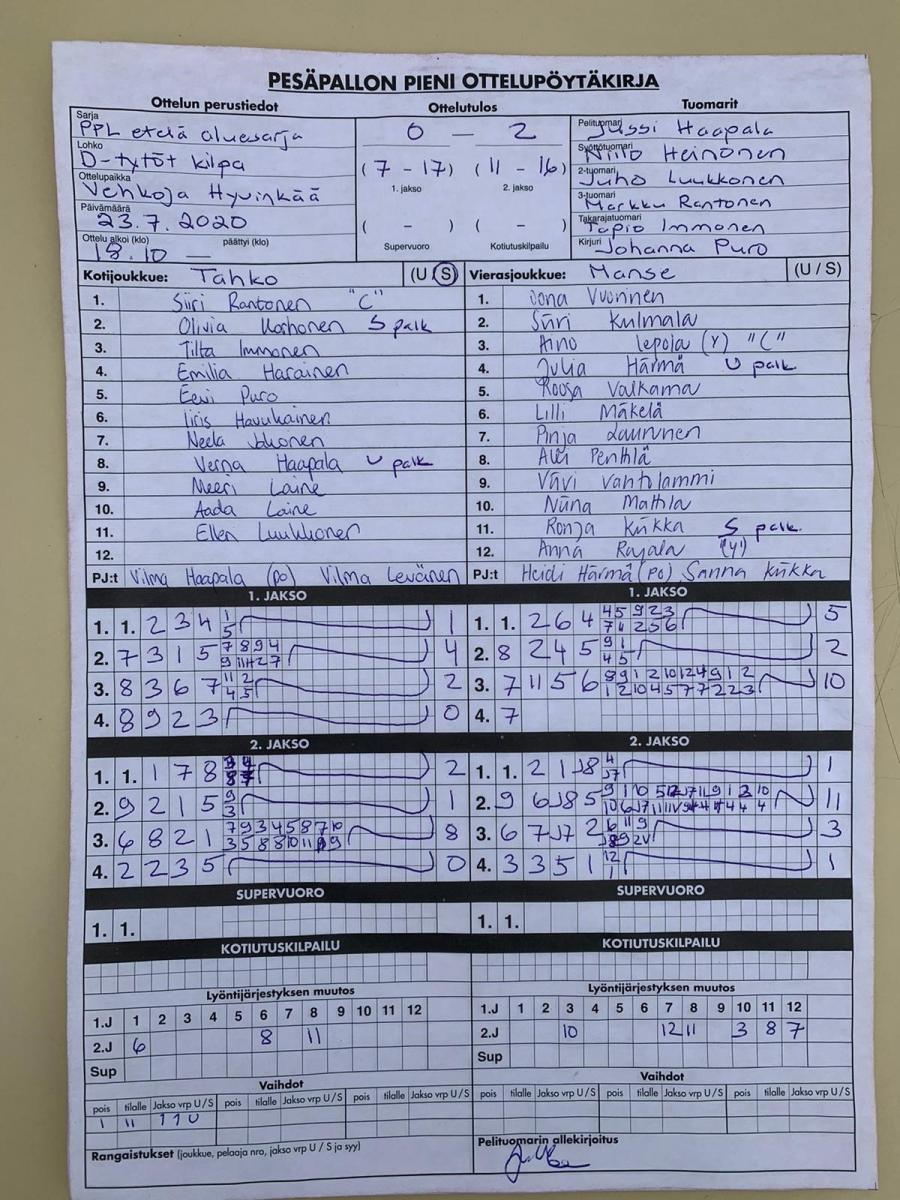 PESÄPALLON PIENI OTTELUPÖYTÄKIRJA
Ottelun perustiedot
Sarja
PPL etelä aluesarja
Lohko
D-tytöt kilpa
Ottelupaikka
Vehkoja Hyvinkää
Päivämäärä
23.7.2020
Ottelu alkoi (klo) päättyi (klo)
18.10 —
Ottelutulos
0 — 2
(7 - 17) (11 - 16)
1. jakso 2. jakso
( - ) ( - )
Supervuoro Kotiutuskilpailu
Tuomarit
Pelituomari
Jussi Haapala
Syöttötuomari
Niilo Heinonen
2-tuomari
Juho Luukkonen
3-tuomari
Markku Rantonen
Takarajatuomari
Tapio Immonen
Kirjuri
Johanna Puro
Kotijoukkue: Tahko (U / S)
1. Siiri Rantonen "C"
2. Olivia Korhonen S palk
3. Tilta Immonen
4. Emilia Harainen
5. Eevi Puro
6. Iiris Havukainen
7. Neela Jokonen
8. Verna Haapala U palk
9. Meeri Laine
10. Aada Laine
11. Ellen Luukkonen
12.
PJ:t Vilma Haapala (po) Vilma Levänen
Vierasjoukkue: Manse (U / S)
1. Jona Vuorinen
2. Siiri Kulmala
3. Aino Lepola (Y) "C"
4. Julia Härmä U palk
5. Roosa Valkama
6. Lilli Mäkelä
7. Pinja Laurinen
8. Penttilä
9. Vantolammi
10. Niina Mattila
11. Ronja Kiikka S palk.
12. Anna Rajala ("Y")
PJ:t Heidi Härmä (po) Sanna Kiikka
1. JAKSO
1. 1. 2 3 4 1 1
5
2. 7 3 1 5 7 8 9 4 4
9 11 4 2 7
3. 8 3 6 7 11 2 2
4 5
4. 8 9 2 3 0
1. JAKSO
1. 1. 2 6 4 4 5 9 2 3 5
7 11 2 5 6
2. 8 2 4 5 9 1 2
4 5
3. 7 11 5 6 8 9 1 2 10 12 4 9 1 2 10
1 2 10 4 5 7 7 2 2 3
4. 7
2. JAKSO
1. 1. 1 7 8 2
2. 9 2 1 5 9 1
3
3. 6 8 2 1 7 9 3 4 5 8 7 10 8
3 5 8 8 10 11 9
4. 2 2 3 5 0
2. JAKSO
1. 1. 2 1 J8 4 1
J7
2. 9 6 J8 5 11
3. 6 7 J7 2 6 11 9 3
4. 3 3 5 1 12 1
1
SUPERVUORO
1. 1.
SUPERVUORO
1. 1.
KOTIUTUSKILPAILU
KOTIUTUSKILPAILU
Lyöntijärjestyksen muutos
1.J 1 2 3 4 5 6 7 8 9 10 11 12
2.J 6 8 11
Sup
Lyöntijärjestyksen muutos
1.J 1 2 3 4 5 6 7 8 9 10 11 12
2.J 10 12 11 3 8 7
Sup
Vaihdot
pois tilalle Jakso vrp U/S pois tilalle Jakso vrp U/S pois tilalle Jakso vrp U/S
1 11 1 1 U
Vaihdot
pois tilalle Jakso vrp U/S pois tilalle Jakso vrp U/S pois tilalle Jakso vrp U/S
Rangaistukset (joukkue, pelaaja nro, jakso vrp U / S ja syy)
Pelituomarin allekirjoitus